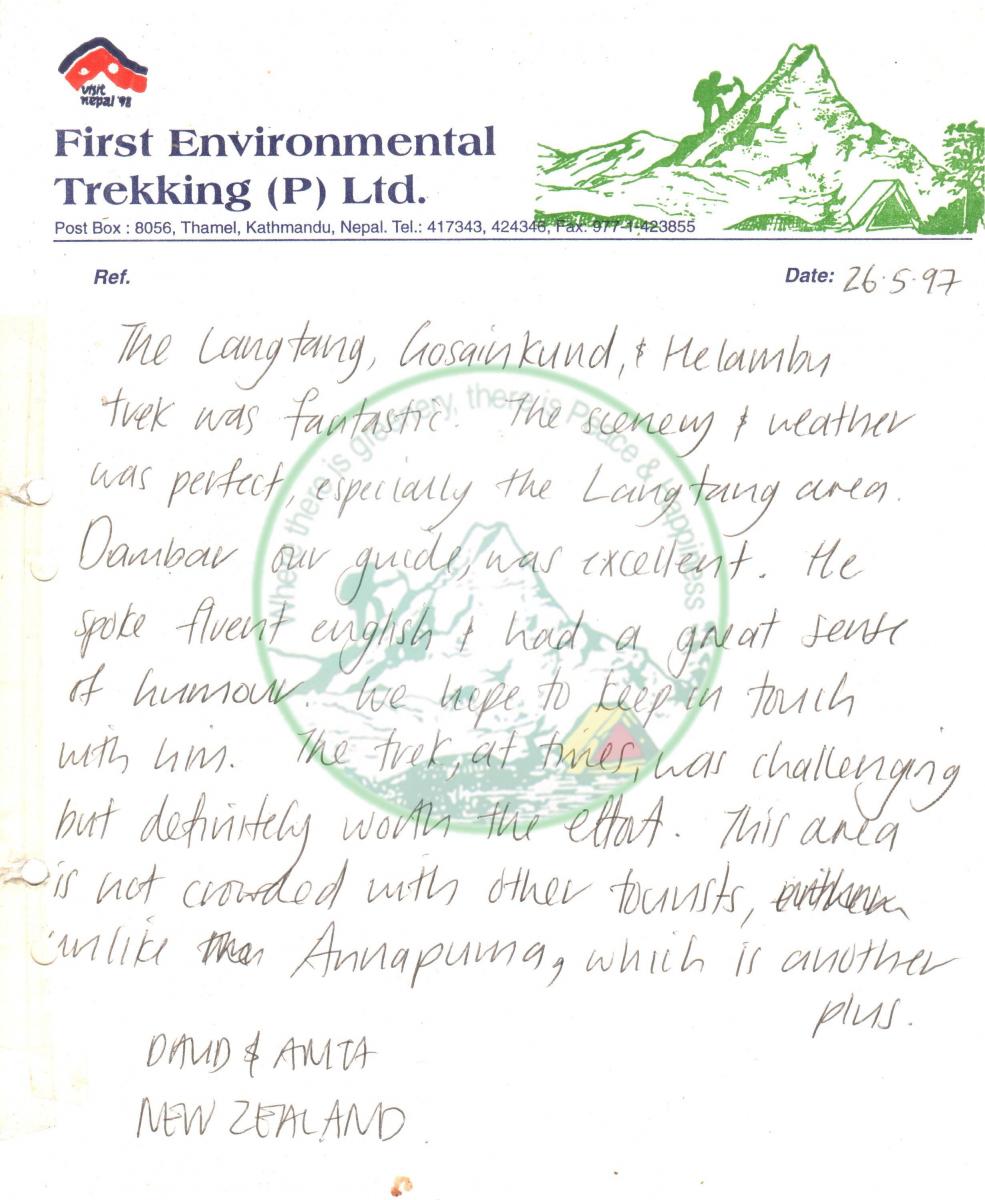 visit
nepal '98
First Environmental
Trekking (P) Ltd.
Post Box : 8056, Thamel, Kathmandu, Nepal. Tel.: 417343, 424346, Fax: 977-1-423855
Ref.
Date: 26.5.97
The Langtang, Gosainkund, & Helambu
trek was fantastic. The scenery & weather
was perfect, especially the Langtang area.
Dambar our guide, was excellent. He
spoke fluent english & had a great sense
of humour. We hope to keep in touch
with him. The trek, at times, was challenging
but definitely worth the effort. This area
is not crowded with other tourists,
unlike Annapurna, which is another
plus.
DAVID & ANITA
NEW ZEALAND
Where there is greenery, there is Peace & Happiness